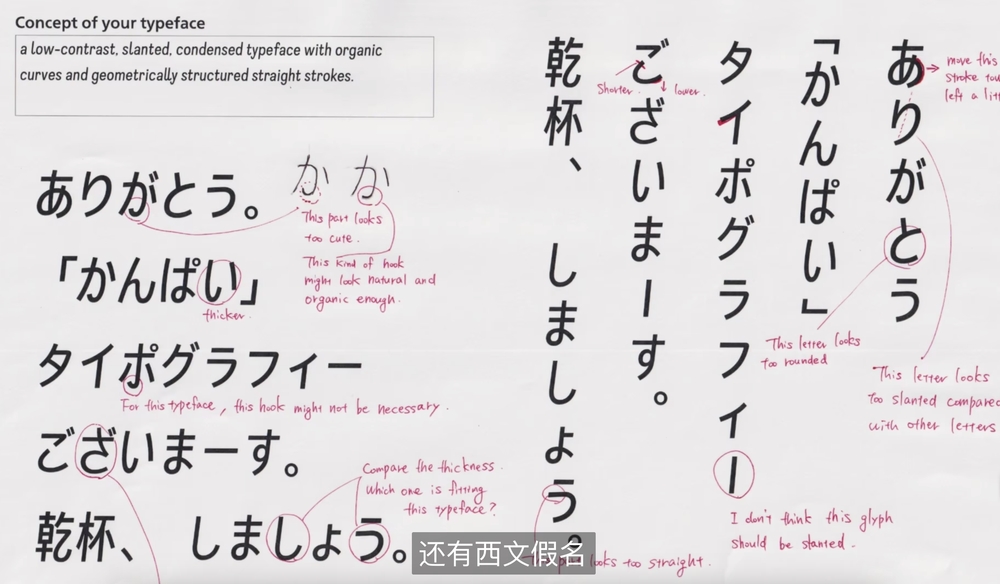 Concept of your typeface
a low-contrast, slanted, condensed typeface with organic
curves and geometrically structured straight strokes.
ありがとう。
か か
This part looks
too cute.
This kind of hook
might look natural and
organic enough.
「かんぱい」
thicker.
タイポグラフィー
For this typeface, this hook might not be necessary.
ございまーす。
Compare the thickness.
Which one is fitting
this typeface?
乾杯、 しましょう。
ありがとう
「かんぱい」
タイポグラフィー
ございまーす。
乾杯、 しましょう。
Shorter.
lower.
move this
stroke
left a
This letter looks
too rounded
This letter looks
too slanted compared
with other letters
I don't think this glyph
should be slanted.
looks too straight.
还有西文假名